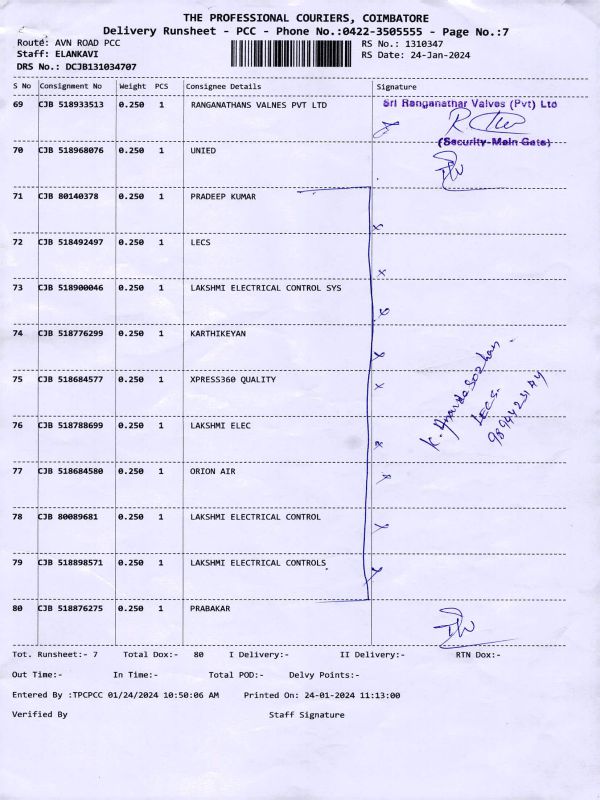 THE PROFESSIONAL COURIERS, COIMBATORE
Delivery Runsheet - PCC - Phone No.:0422-3505555 - Page No.:7
Route: AVN ROAD PCC
RS No.: 1310347
Staff: ELANKAVI
RS Date: 24-Jan-2024
DRS No.: DCJB131034707
S No Consignment No Weight PCS Consignee Details Signature
69 CJB 518933513 0.250 1 RANGANATHANS VALNES PVT LTD
Sri Ranganathar Valves (Pvt) Ltd
(Security-Main Gate)
70 CJB 518968076 0.250 1 UNIED
71 CJB 80140378 0.250 1 PRADEEP KUMAR
72 CJB 518492497 0.250 1 LECS
73 CJB 518900046 0.250 1 LAKSHMI ELECTRICAL CONTROL SYS
74 CJB 518776299 0.250 1 KARTHIKEYAN
75 CJB 518684577 0.250 1 XPRESS360 QUALITY
LECS.
76 CJB 518788699 0.250 1 LAKSHMI ELEC
77 CJB 518684580 0.250 1 ORION AIR
78 CJB 80089681 0.250 1 LAKSHMI ELECTRICAL CONTROL
79 CJB 518898571 0.250 1 LAKSHMI ELECTRICAL CONTROLS
80 CJB 518876275 0.250 1 PRABAKAR
Tot. Runsheet:- 7 Total Dox:- 80 I Delivery:- II Delivery:- RTN Dox:-
Out Time:- In Time:- Total POD:- Delvy Points:-
Entered By :TPCPCC 01/24/2024 10:50:06 AM Printed On: 24-01-2024 11:13:00
Verified By Staff Signature